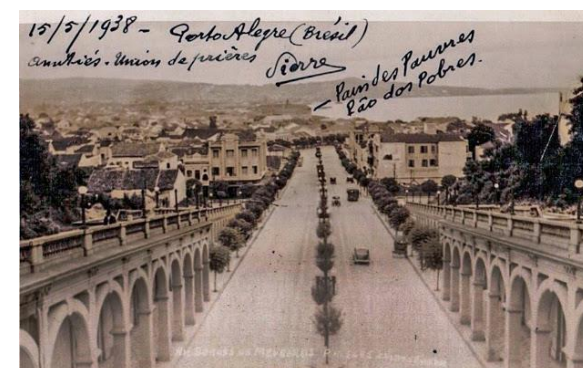 15/5/1938 - Porto Alegre (Brésil)
amitiés. Union de prières
Pierre
Pain des Pauvres
Pão dos Pobres.
Av. Borges de Medeiros